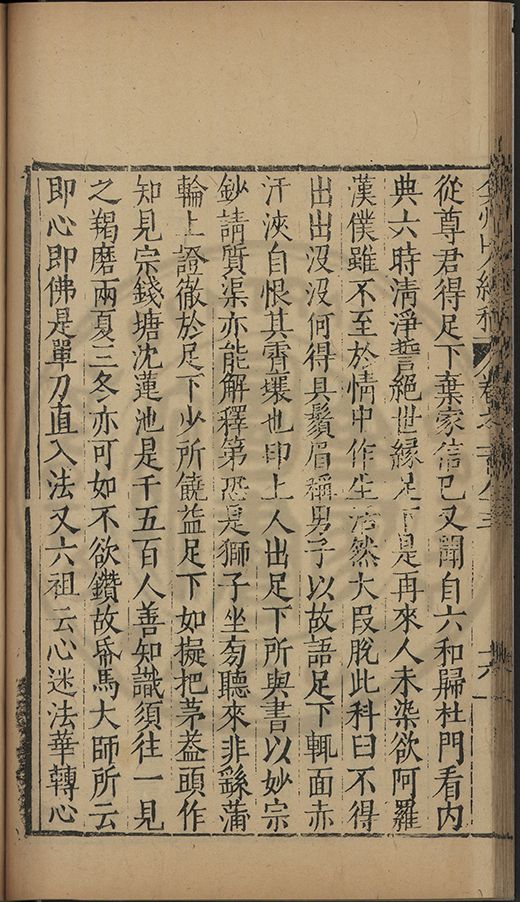 弇州山人續稿 卷之一百八十三 十六
從尊君得足下棄家信已又聞自六和歸杜門看內
典六時清淨誓絕世緣足下是再來人未染欲阿羅
漢僕雖不至於情中作生活然大段脫此科臼不得
出出沒沒何得具鬚眉稱男子以故語足下輒面赤
汗浹自恨其霄壤也印上人出足下所與書以妙宗
鈔請質渠亦能解釋第恐是獅子坐旁聽來非繇蒲
輪上證徹於足下少所饒益足下如擬把茅葢頭作
知見宗錢塘沈蓮池是千五百人善知識須往一見
之羯磨兩夏三冬亦可如不欲鑽故帋馬大師所云
即心即佛是單刀直入法又六祖云心迷法華轉心